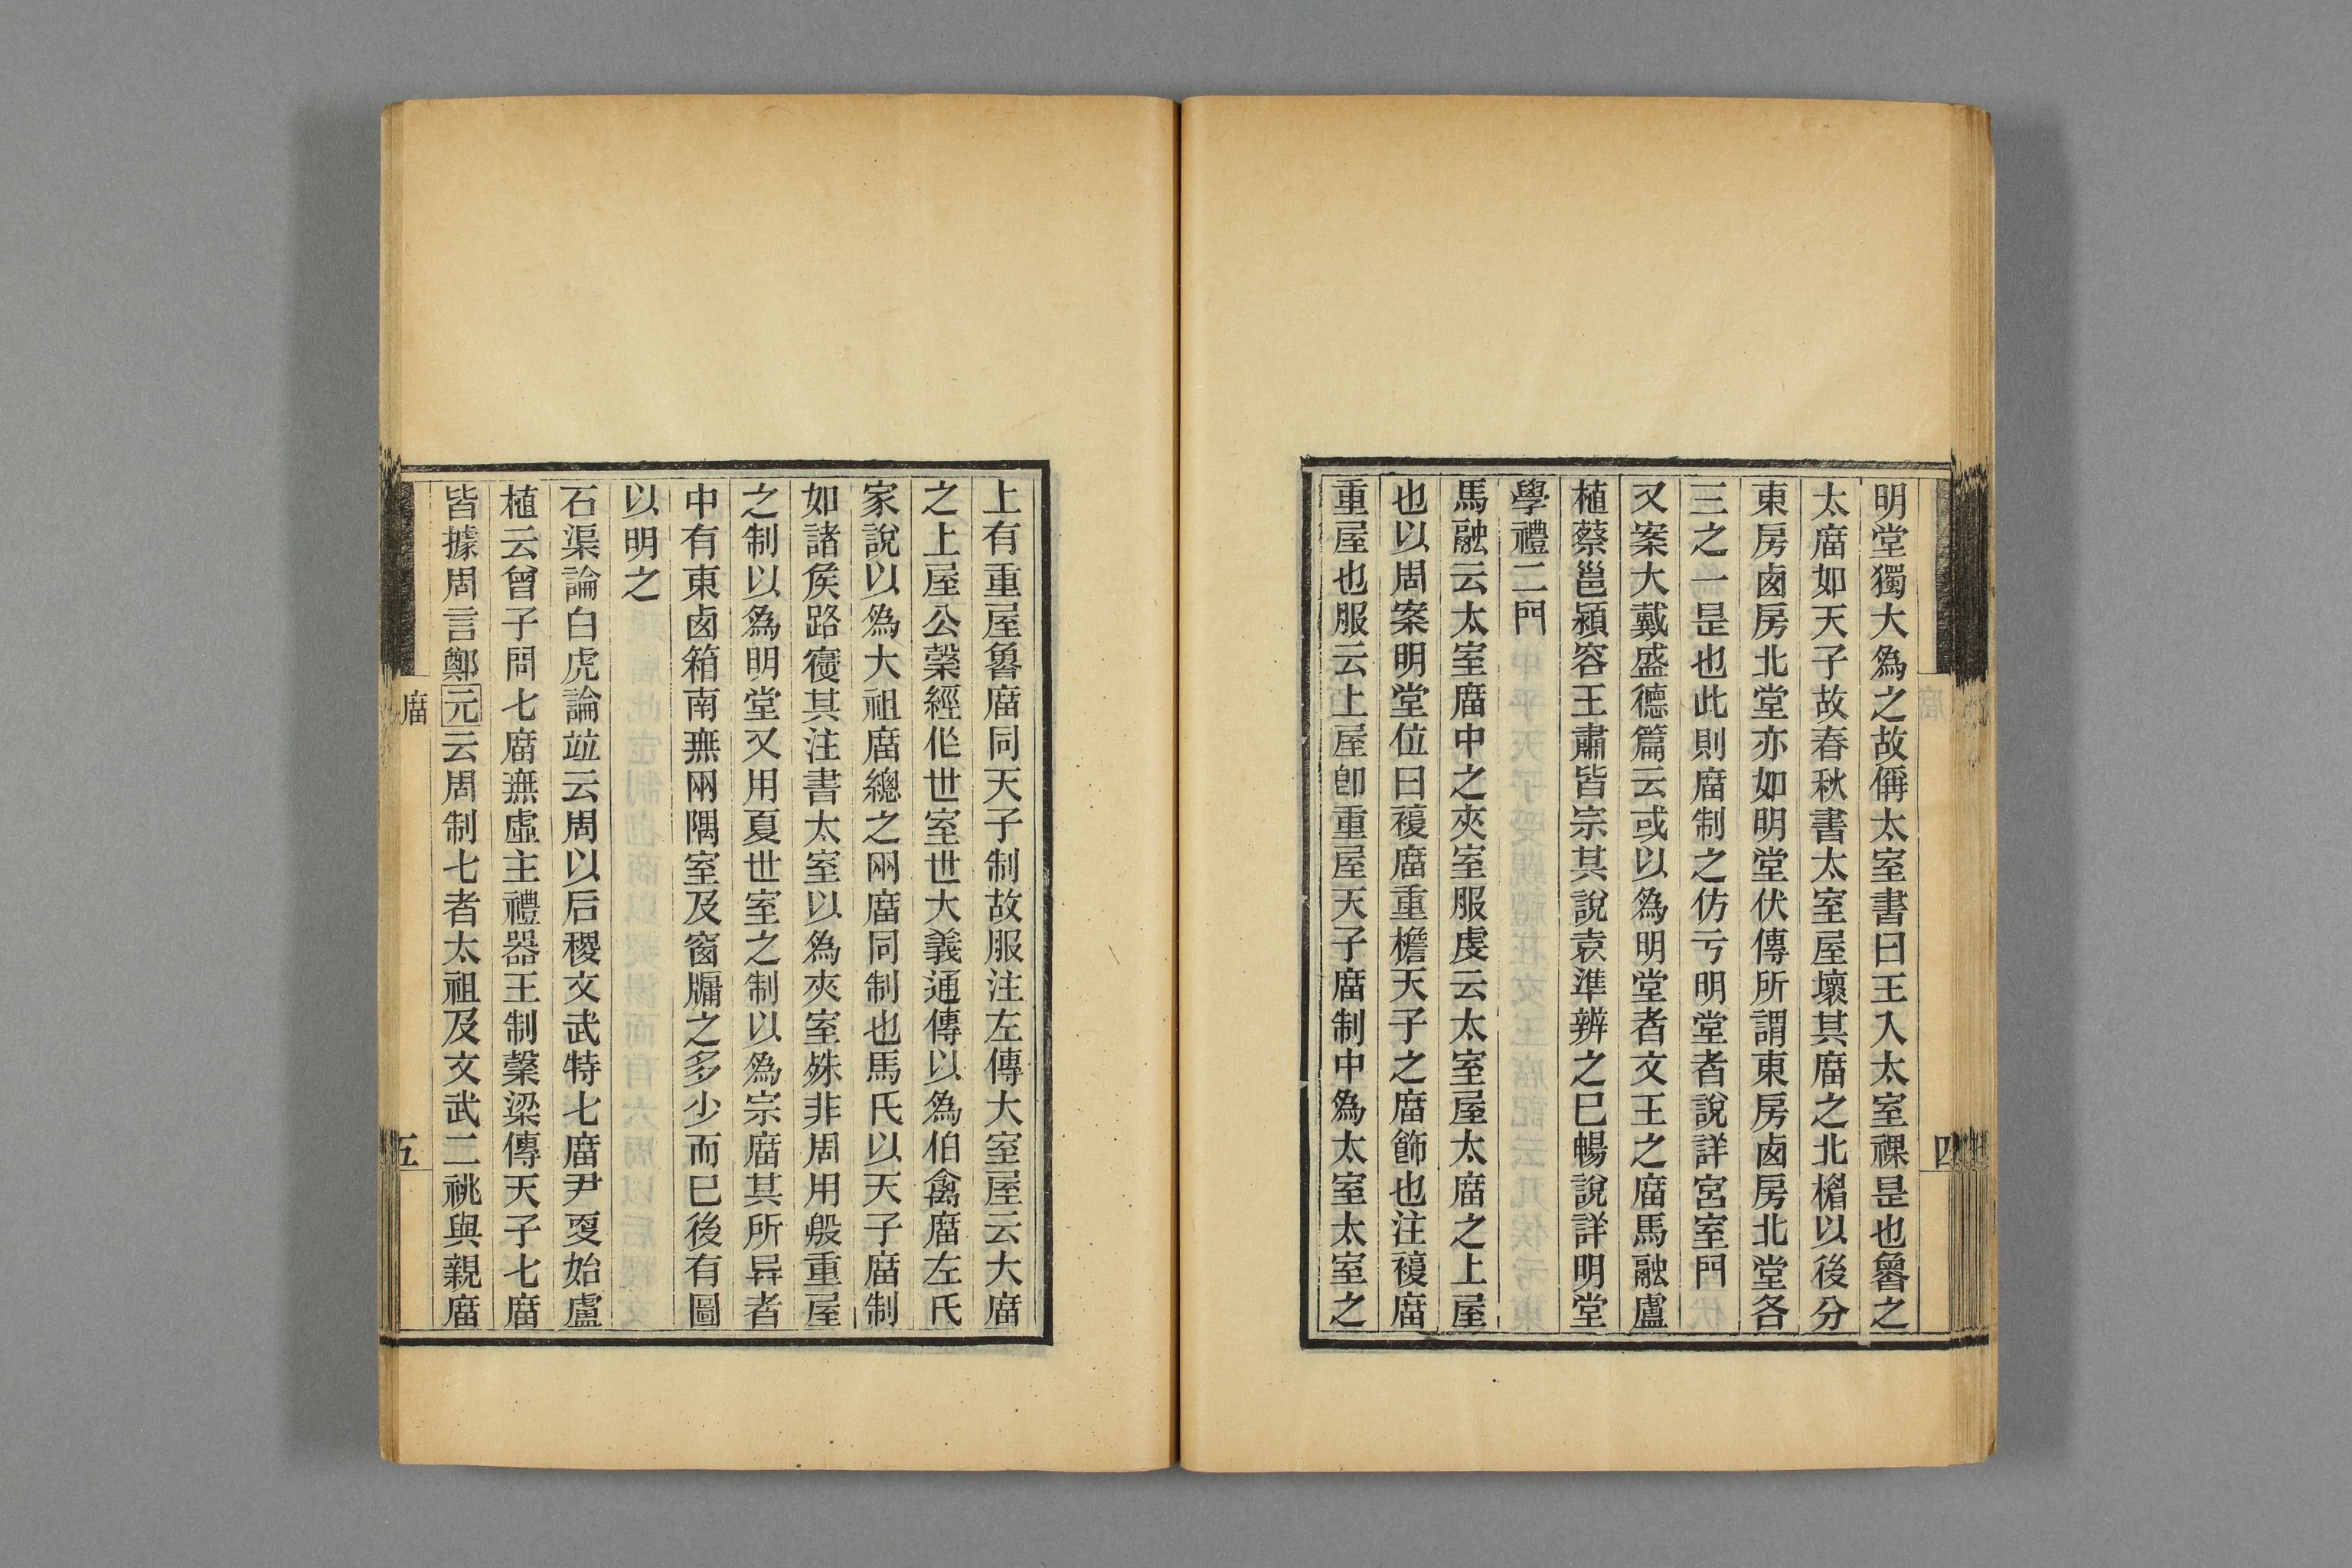 明堂獨大爲之故偁太室書曰王入太室祼是也魯之
太廟如天子故春秋書太室屋壞其廟之北楣以後分
東房鹵房北堂亦如明堂伏傳所謂東房鹵房北堂各
三之一是也此則廟制之仿亏明堂者說詳宮室門
又案大戴盛德篇云或以爲明堂者文王之廟馬融盧
植蔡邕潁容王肅皆宗其說袁準辨之已暢說詳明堂
學禮二門
馬融云太室廟中之夾室服虔云太室屋太廟之上屋
也以周案明堂位曰複廟重檐天子之廟飾也注複廟
重屋也服云上屋卽重屋天子廟制中爲太室太室之
四
上有重屋魯廟同天子制故服注左傳大室屋云大廟
之上屋公榖經作世室世大義通傳以爲伯禽廟左氏
家說以爲大祖廟總之兩廟同制也馬氏以天子廟制
如諸侯路寑其注書太室以爲夾室殊非周用殷重屋
之制以爲明堂又用夏世室之制以爲宗廟其所异者
中有東鹵箱南無兩隅室及窗牖之多少而已後有圖
以明之
石渠論白虎論竝云周以后稷文武特七廟尹叓始盧
植云曾子問七廟無虛主禮器王制榖梁傳天子七廟
皆據周言鄭元云周制七者太祖及文武二祧與親廟
廟
五